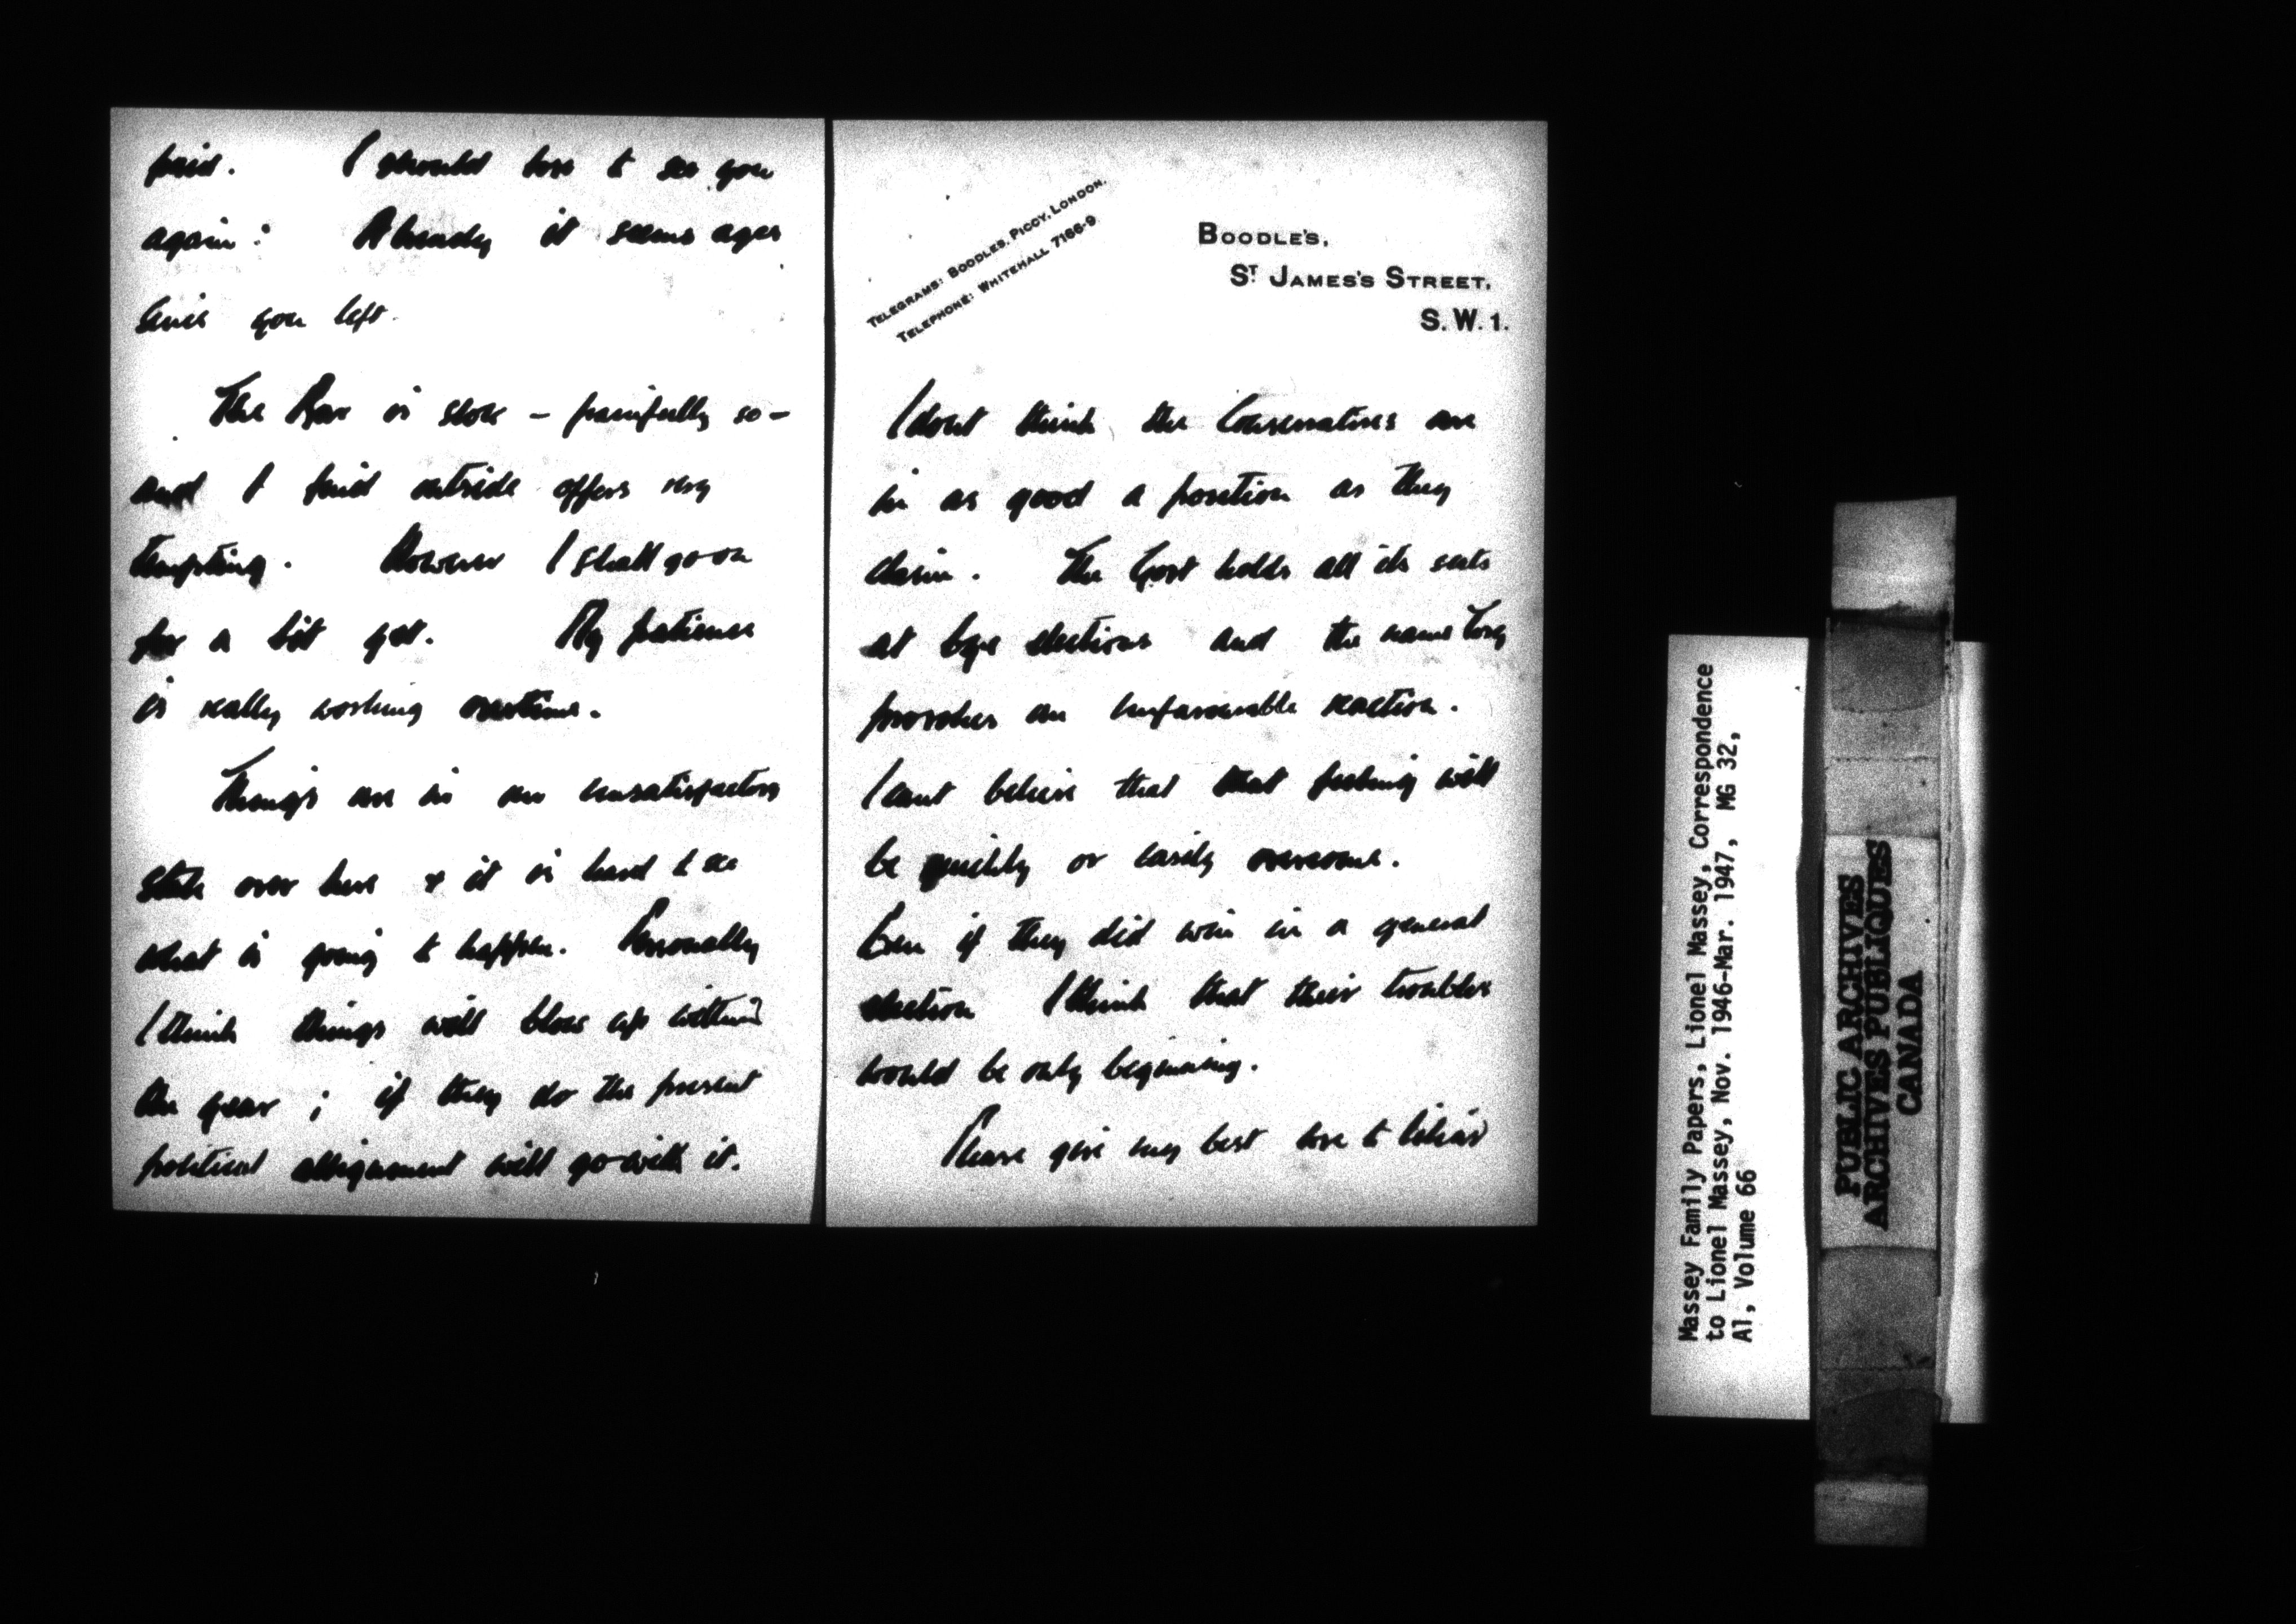 paid. I should love to see you
again: Already it seems ages
since you left.
The Bar is slow – painfully so –
and I find outside offers very
tempting. However I shall go on
for a bit yet. My patience
is really working overtime.
Things are in an unsatisfactory
state over here & it is hard to see
what is going to happen. Personally
I think things will blow up within
the year; if they do the present
political alignment will go with it.
TELEGRAMS: BOODLES, PICCY, LONDON.
TELEPHONE: WHITEHALL 7166-9
BOODLE'S,
ST JAMES'S STREET,
S.W.1.
I dont think the Conservatives are
in as good a position as they
claim. The Govt holds all its seats
at bye elections and the name Tory
provokes an unfavourable reaction.
I cant believe that that feeling will
be quickly or easily overcome.
Even if they did win in a general
election I think that their troubles
would be only beginning.
Please give my best love to Lilias
Massey Family Papers, Lionel Massey, Correspondence
to Lionel Massey, Nov. 1946-Mar. 1947, MG 32,
A1, Volume 66
PUBLIC ARCHIVES
ARCHIVES PUBLIQUES
CANADA